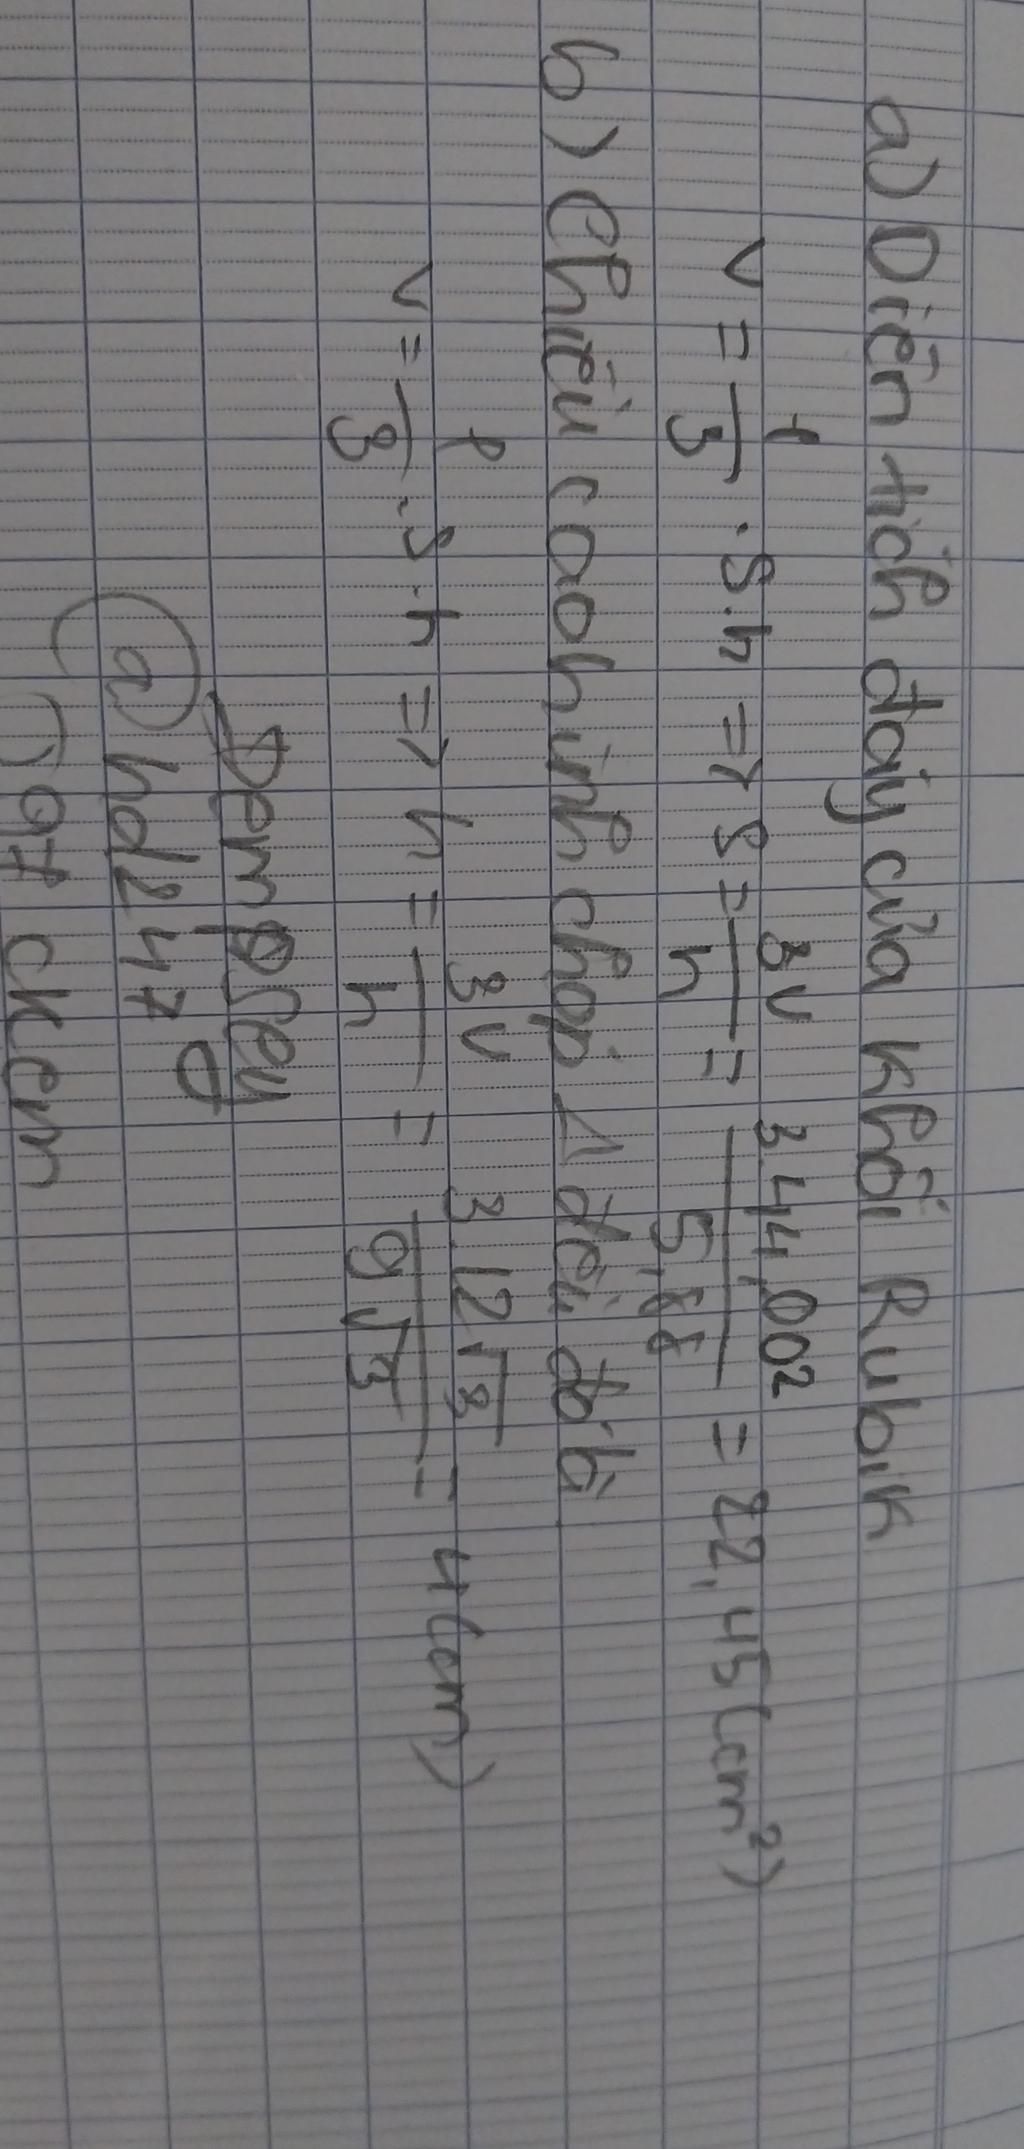 a) Diện tích đáy của khối Rubik
V = 1/3 . S . h => S = 3V/h = 3.44,002/5,88 = 22,45 (cm²)
b) Chiều cao hình chóp Δ đều đó là
V = 1/3 . S . h => h = 3V/h = 3.12√3/9√3 = 4 (cm)
@hd247
97 cken